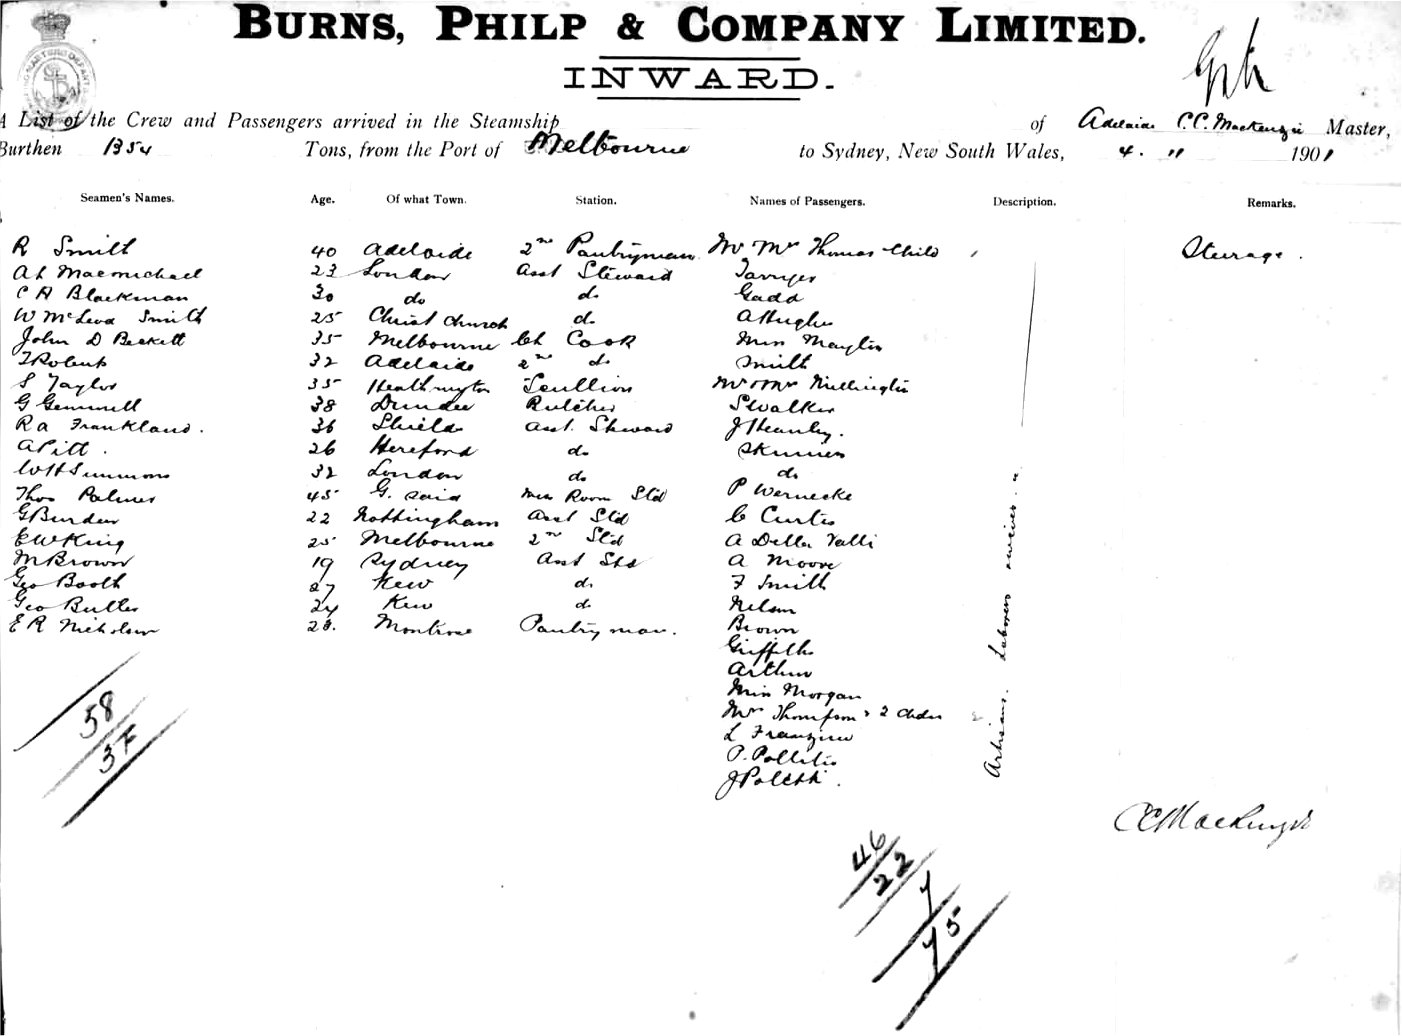 BURNS, PHILP & COMPANY LIMITED.
INWARD.
A List of the Crew and Passengers arrived in the Steamship of Adelaide C.C. Mackenzie Master,
Burthen 1354 Tons, from the Port of Melbourne to Sydney, New South Wales, 4. " 1901
Seamen's Names. Age. Of what Town. Station. Names of Passengers. Description. Remarks.
R Smith 40 Adelaide 2nd Pantryman Mr Mrs Thomas Child Steerage.
A L Macmichael 23 London Asst Steward
C H Blackman 30 do do Gadd
W McLeod Smith 25 Christ Church do A Hughes
John D Beckett 35 Melbourne Ch Cook Miss
T Roberts 32 Adelaide 2nd do Smith
S Taylor 35 Scullion Mr & Mrs Millington
G Gemmell 38 Dundee Butcher S Walker
R A Frankland. 36 Shields Asst. Steward J Heanley.
A Pitt. 26 Hereford do Skinner
W H Simmons 32 London do do
Thos Palmer 45 G. Said Mess Room Std P Wernecke
G Burden 22 Nottingham Asst Std C Curtis
E W King 25 Melbourne 2nd Std A Della Valli
M Brown 19 Sydney Asst Std A Moore
Geo Booth 27 Kew do F Smith
Geo Butler 24 Kew do Nelson
E R Nicholson 28. Montrose Pantryman. Brown
Griffiths
Arthur
Miss Morgan
Mrs Thompson & 2 chdn
L
P. Pollitis
J Poletti.
Artisans. Laborers wives.
58
3F
C C Mackenzie
46
22
7
75